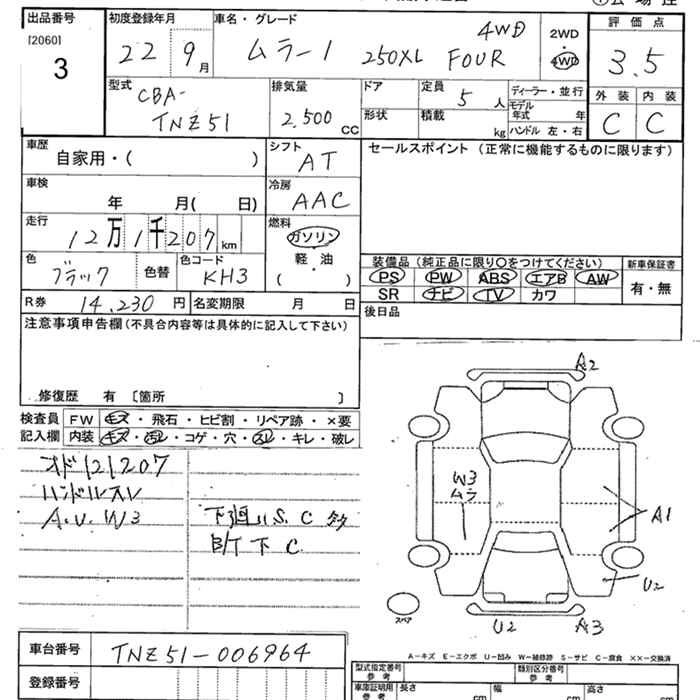 出品番号 初度登録年月 車名・グレード 評価点
[2060] 3 22 9月 ムラーノ 250XL FOUR 4WD 2WD・4WD 3.5
型式 排気量 ドア 定員 5人 ディーラー・並行 外装 内装
CBA-TNZ51 2.500cc 形状 積載 kg モデル年式 年 ハンドル 左・右 C C
車歴 自家用・( ) シフト AT セールスポイント (正常に機能するものに限ります)
車検 年 月( 日) 冷房 AAC
走行 12万1千207km 燃料 ガソリン 軽・油 ( )
色 ブラック 色替 色コード KH3
装備品(純正品に限り○をつけてください) 新車保証書
PS PW ABS エアB AW 有・無
SR ナビ TV カワ
R券 14.230円 名変期限 月 日 後日品
注意事項申告欄(不具合内容等は具体的に記入して下さい)
修復歴 有 [箇所 ]
検査員 FW キズ・飛石・ヒビ割・リペア跡・×要
記入欄 内装 キズ・汚レ・コゲ・穴・スレ・キレ・破レ
オド121207
ハンドルスレ
A.U.W3 下廻りS.C多
B/T下C
A2
W3
ムラ
A1
U2
U2 A3
スペア
A-キズ E-エクボ U-凹み W-補修跡 S-サビ C-腐食 XX-交換済
車台番号 TNZ51-006964
登録番号
型式指定番号 参考 類別区分番号 参考
車庫証明用 参考 長さ cm 幅 cm 高さ cm